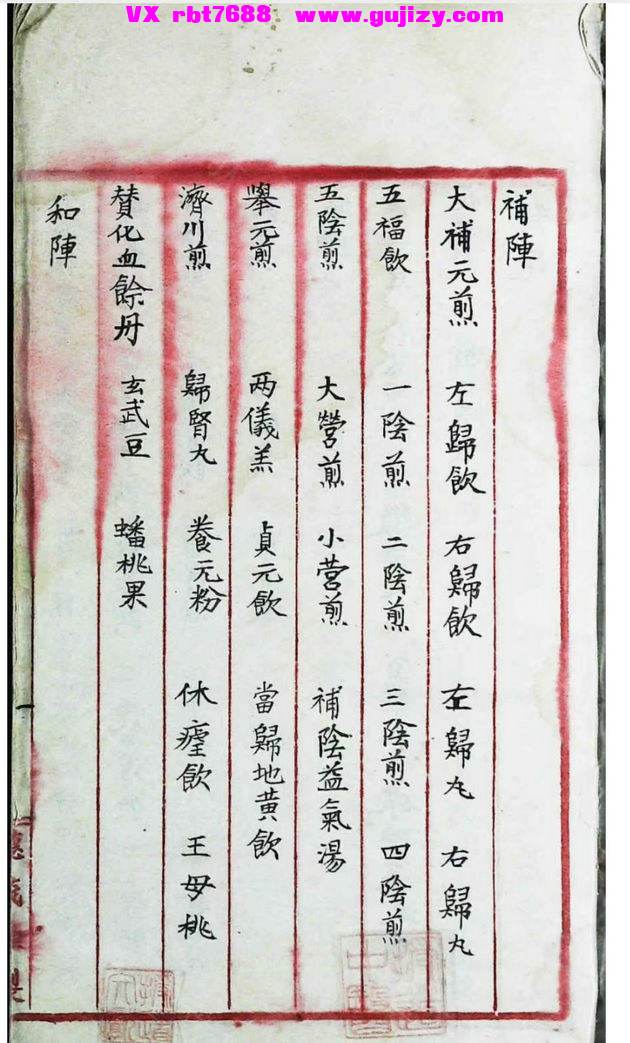 VX rbt7688 www.gujizy.com
補陣
大補元煎 左歸飲 右歸飲 左歸丸 右歸丸
五福飲 一陰煎 二陰煎 三陰煎 四陰煎
五陰煎 大營煎 小营煎 補陰益氣湯
舉元煎 两儀羔 貞元飲 當歸地黄飲
濟川煎 歸腎丸 養元粉 休瘧飲 王母桃
賛化血餘丹 玄武豆 蟠桃果
和陣